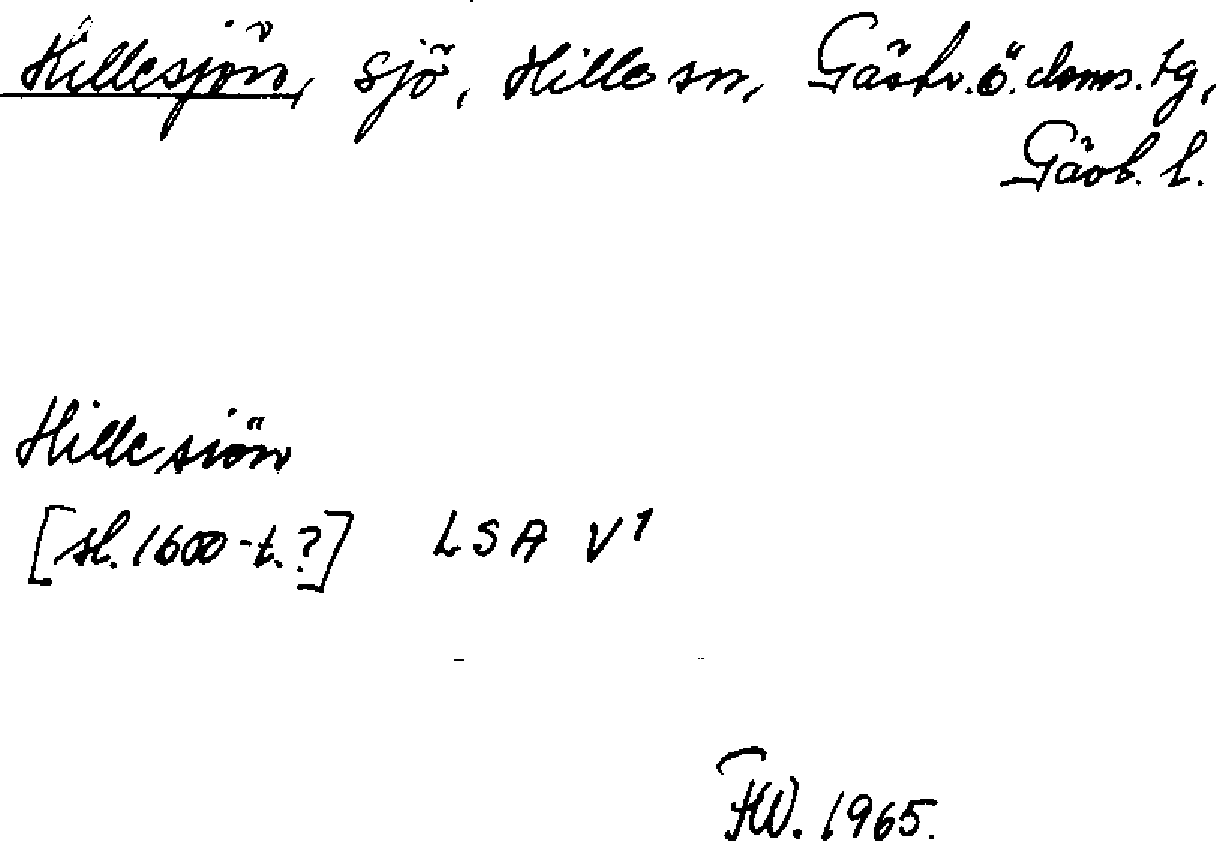 Hillesjön, sjö, Hille sn, Gästr. ö. doms. tg,
Gävb. l.
Hille siön
[sl. 1600-t.?] LSA V1
FW. 1965.